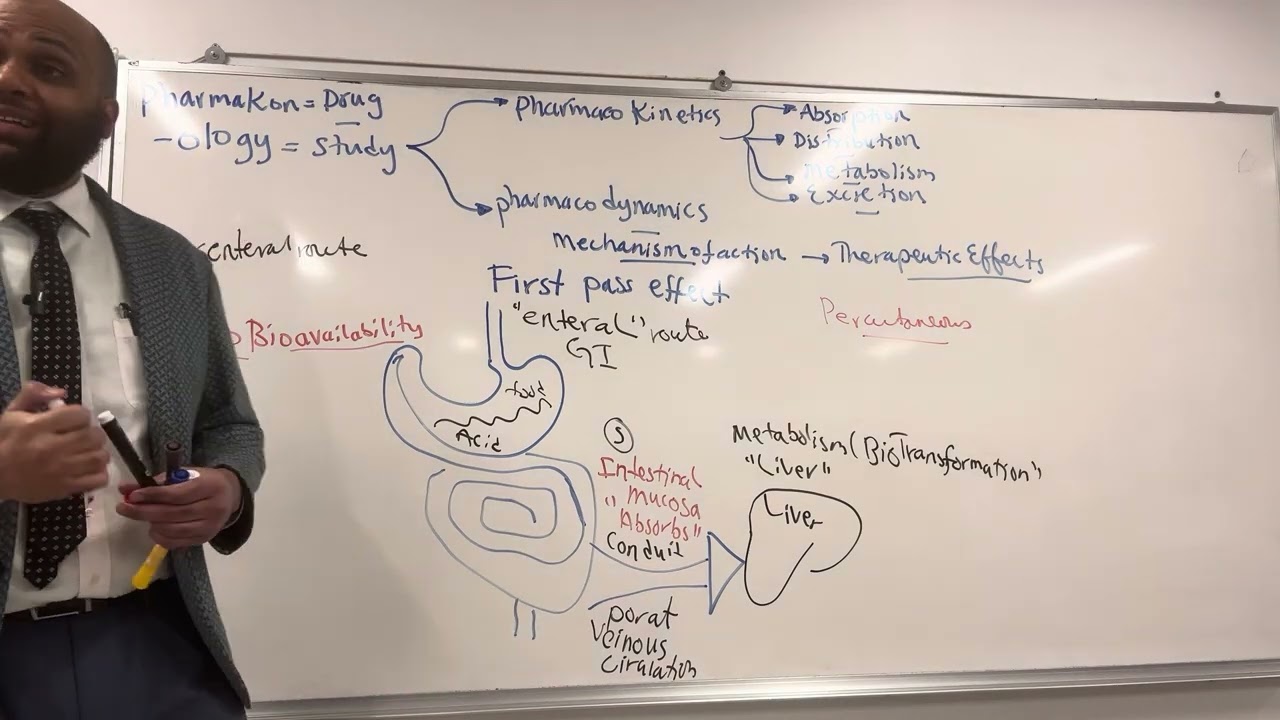 pharmakon = Drug
-ology = study
pharmaco kinetics
Absorption
Distribution
metabolism
Excretion
pharmaco dynamics
mechanism of action → Therapeutic Effects
enteral route
First pass effect
"enteral" route
GI
Percutaneous
Bioavailability
food
Acid
S
Intestinal
"mucosa
Absorbs"
conduit
porat
Veinous
Ciralation
Metabolism (BioTransformation"
"Liver"
Liver